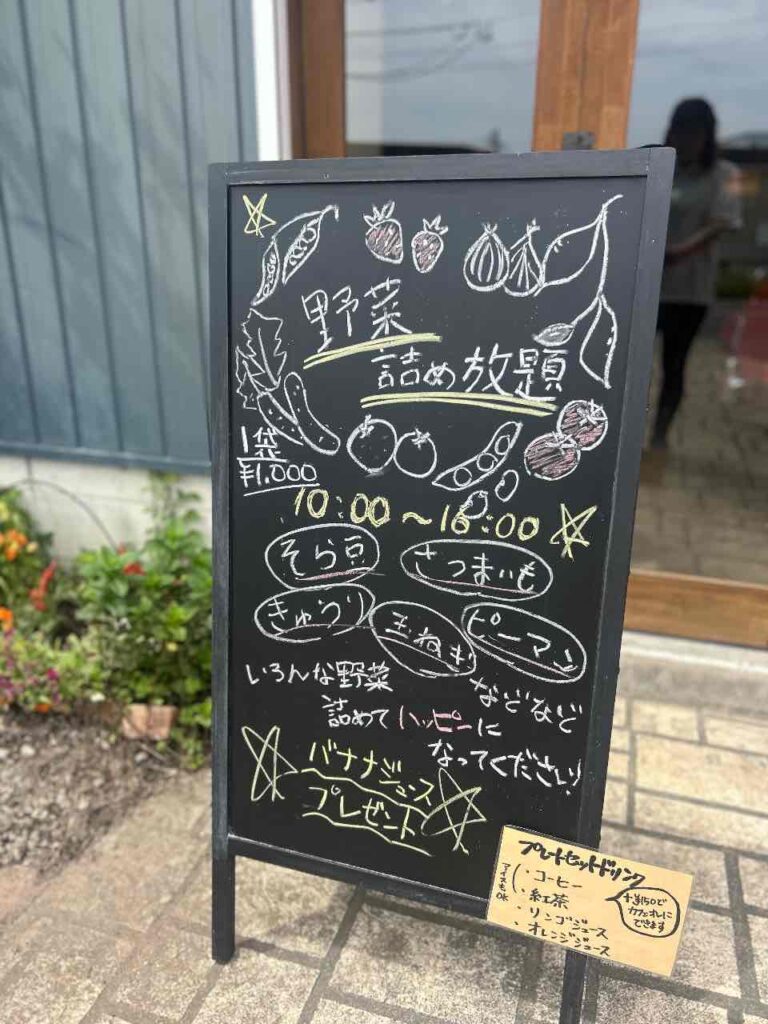 野菜
詰め放題
1袋
¥1,000
10:00〜16:00
そら豆
さつまいも
きゅうり
玉ねぎ
ピーマン
などなど
いろんな野菜
詰めてハッピーに
なってください!
バナナジュース
プレゼント
プレートセットドリンク
アイスもOK
・コーヒー
・紅茶
・リンゴジュース
・オレンジジュース
+¥150で
カフェオレに
できます